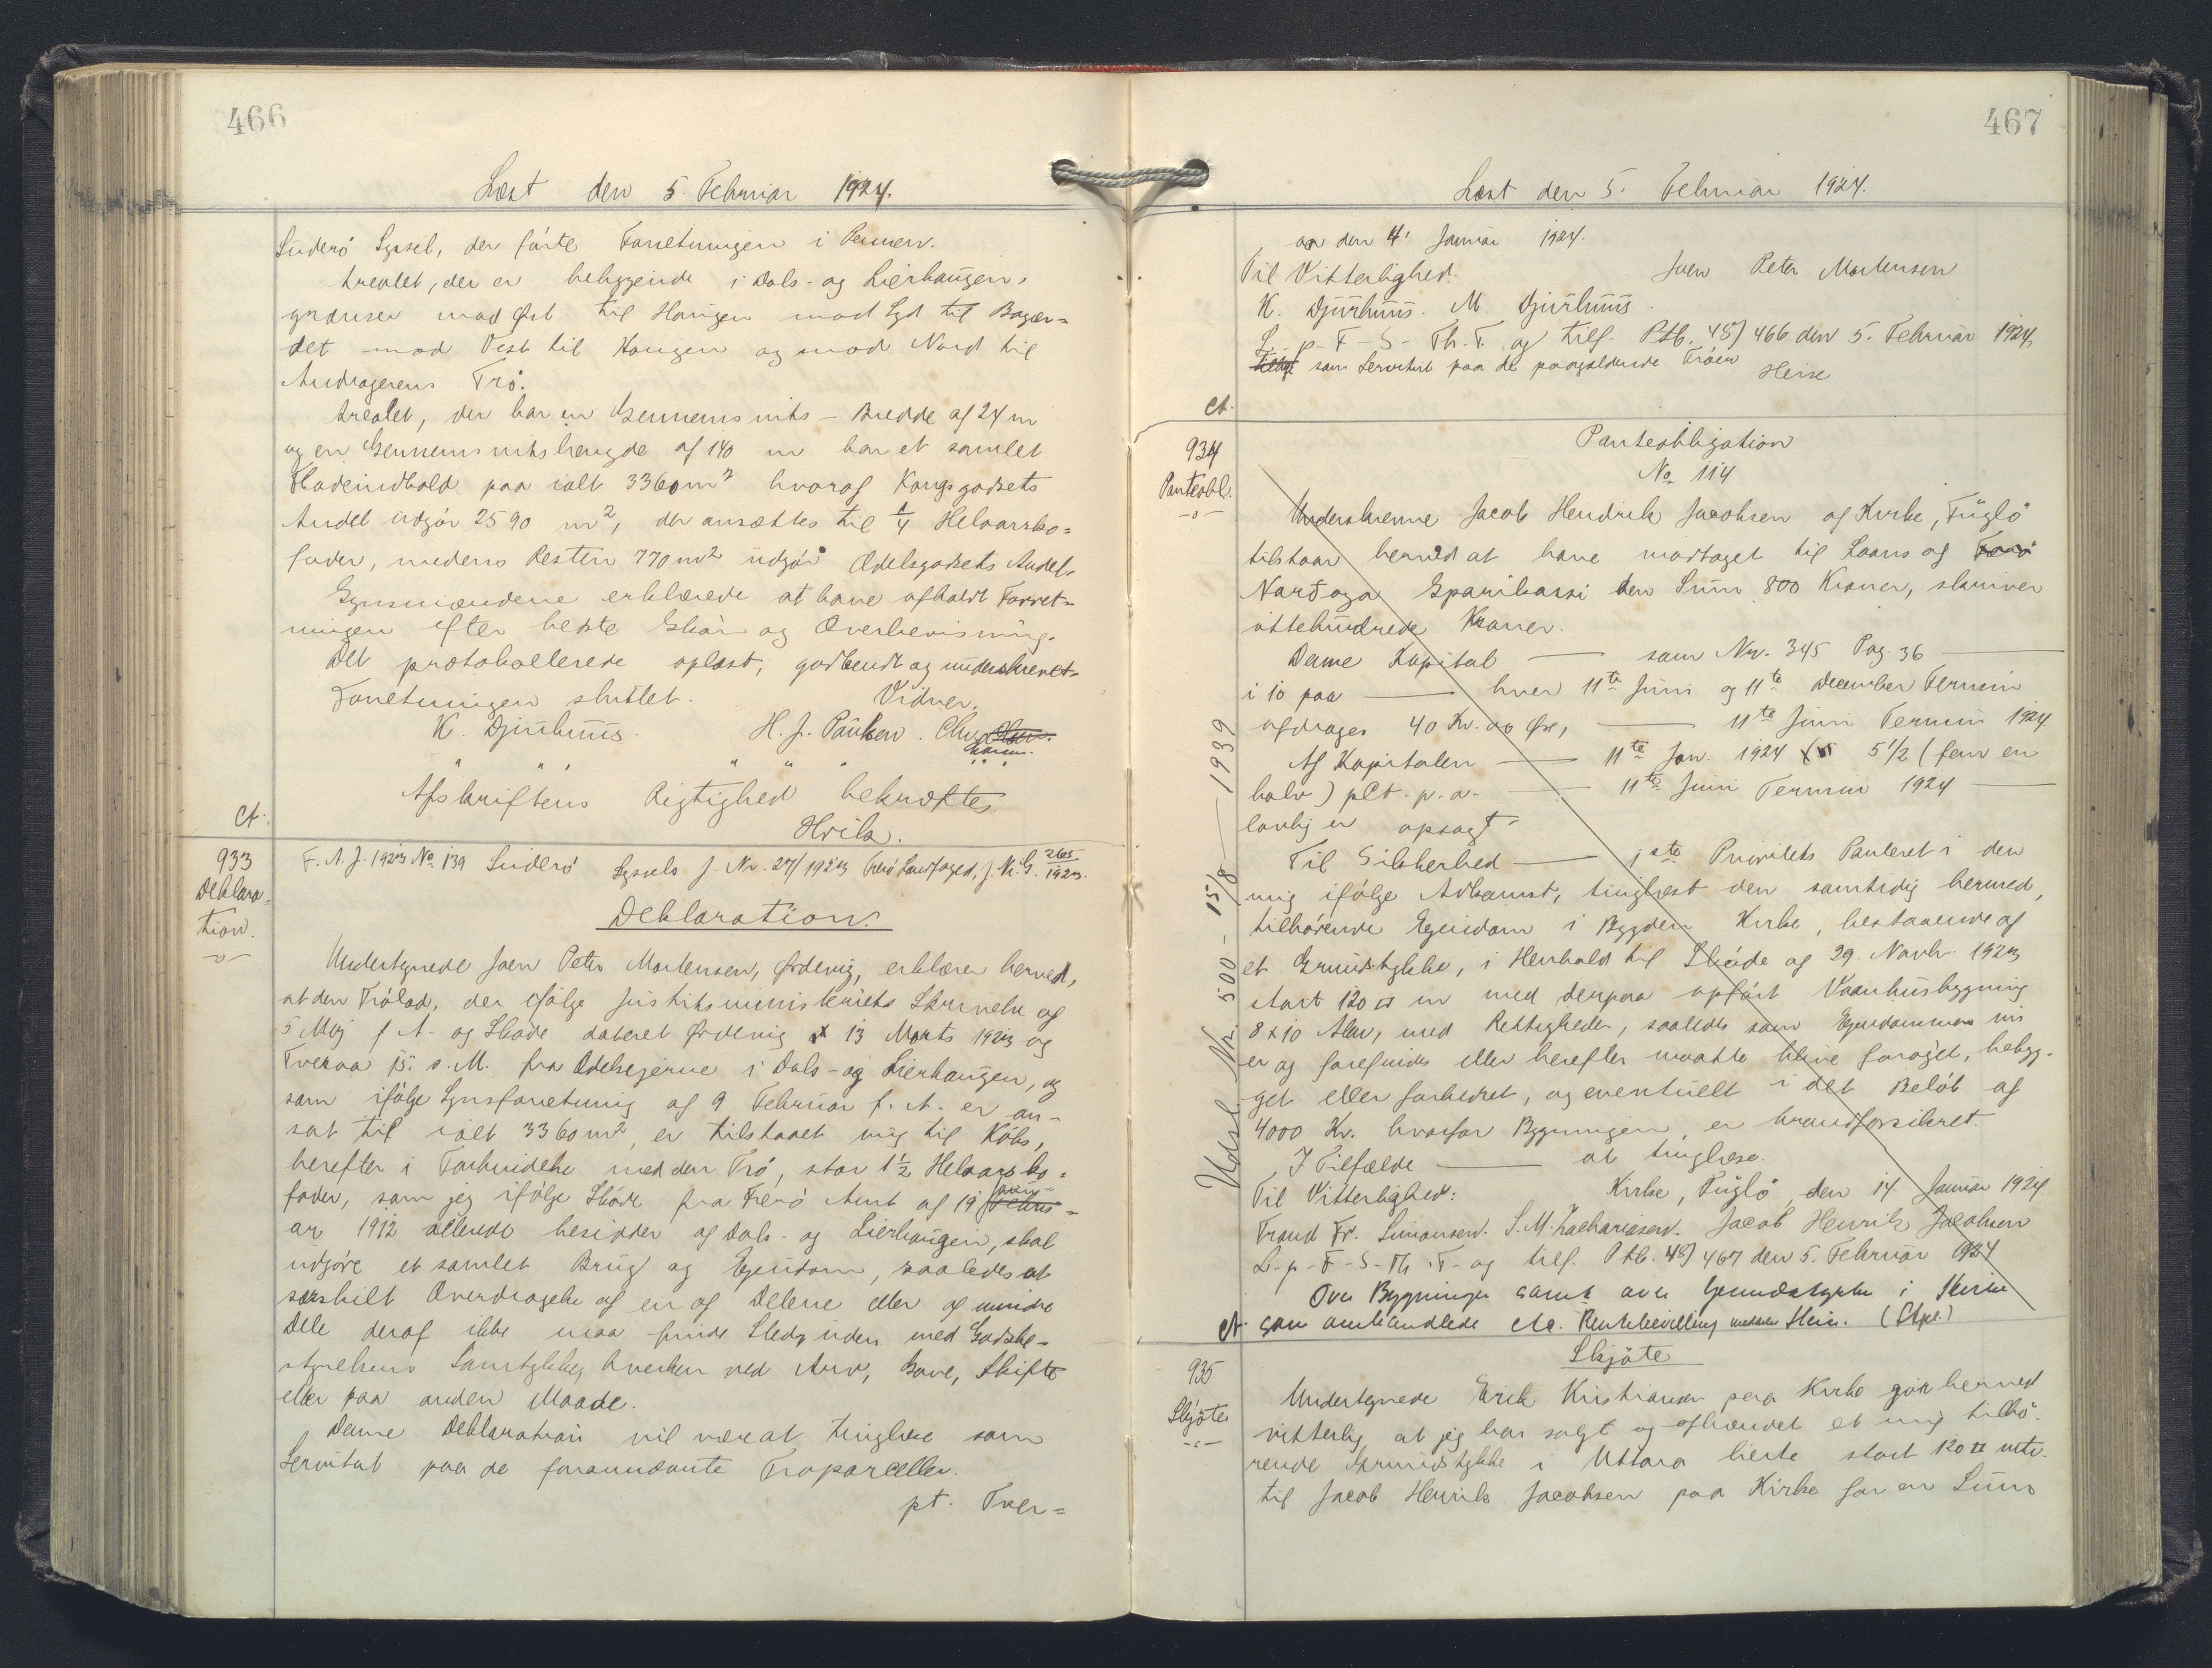 466
Læst den 5. Februar 1924.
Suderö Syssel, der förte Forretningen i Pennen.
Arealet, der er beliggende i Dals- og Lierhaugen,
grænser mod Øst til Haugen mod Syd til Bøgær=
det mod Vest til Haugen og mod Nord til
Andragerens Trö.
Arealet, der har en Gennemsnits-Bredde af 24 m
og en Gennemsnitslængde af 140 m har et samlet
Fladeindhold paa ialt 3360 m² hvoraf Kongsgodsets
Andel udgör 2590 m², der ansættes til 1/4 Helaarsko=
foder, medens Resten 770 m² udgör Odelsgodsets Andel.
Synsmændene erklærede at have afholdt Forret=
ningen efter bedste Skön og Overbevisning.
Det protokollerede oplæst, godkendt og underskrevet.
Forretningen sluttet. Vidner.
K. Djurhuus. H. J. Paulsen. Chr.
Afskriftens Rigtighed bekræftes
Ct.
933
Deklara=
tion.
F. A. J. 1923 No 139 Suderö Syssels J. Nr. 27/1923 Færö Landfoged, J. Nr. G. 265/1923.
Deklaration.
Undertegnede Joen Peter Mortensen, Ørdevig, erklærer herved,
at den Trölod, der ifölge Justitsministeriets Skrivelse af
5 Maj f. A. og Sköde dateret Ørdevig d 13 Marts 1923 og
Tveraa 15. s. M. fra Odelsejerne i Dals- og Lierhaugen, og
som ifölge Synsforretning af 9 Februar f. A. er an-
sat til ialt 3360 m², er tilstaaet mig til Köbs,
herefter i Forbindelse med den Trö, stor 1 1/2 Helaarsko=
foder, som jeg ifölge Sköde fra Færö Amt af 19 Janu=
ar 1912 allerede besidder af Dals- og Lierhaugen, skal
udgöre et samlet Brug og Ejendom, saaledes at
særskilt Overdragelse af en af Delene eller af mindre
Dele deraf ikke maa finde Sted uden med Godsbe-
styrelsens Samtykke, hverken ved Arv, Gave, Skifte
eller paa anden Maade.
Denne Deklaration vil være at tinglæse som
Servitut paa de forannævnte Tröparceller.
pt. Tver=
467
Læst den 5. Februar 1924.
aa den 4' Januar 1924.
Til Vitterlighed. Joen Peter Mortensen
K. Djurhuus. M. Djurhuus.
L-p-F-S-Th.T. og tilf. Ptb. 48) 466 den 5. Februar 1924,
som Servitut paa de paagældende Tröer Heise
Ct.
934
Panteobl.
Panteobligation
No 114
Underskrevne Jacob Hendrik Jacobsen af Kirke, Fuglö
tilstaar herved at have modtaget til Laans af
Nordoya Sparikassi den Sum 800 Kroner, skriver
ottehundrede Kroner.
Denne Kapital — som Nr. 345 Pag. 36 —
i 10 paa — hver 11te Juni og 11te December Termin
afdrages 40 Kr. 00 Øre, — 11te Juni Termin 1924
Af Kapitalen — 11te Jan. 1924 5 1/2 (fem en
halv) pCt. p. a. — 11te Juni Termin 1924 —
lovlig er opsagt.
Til Sikkerhed — 1ste Prioritets Panteret i den
mig ifölge Adkomst, tinglæst den samtidig hermed,
tilhörende Ejendom i Bygden Kirke, bestaaende af
et Grundstykke, i Henhold til Sköde af 29. Novbr. 1923
stort 120 □ m med derpaa opfört Vaanhusbygning
8 x 10 Alen, med Rettigheder, saaledes som Ejendommen nu
er og forefindes eller herefter maatte blive foröget, bebyg-
get eller forbedret, og eventuelt i det Belöb af
4000 Kr. hvorfor Bygningen er brandforsikret.
I Tilfælde — at tinglæse.
Til Vitterlighed: Kirke, Fuglö, den 14 Januar 1924
Traud Fr. Simonsen. S. M. Zachariasen. Jacob Henrik Jacobsen
L-p-F-S-Th.T-og tilf. Ptb. 48) 467 den 5. Februar 1924
Over Bygninger samt over Grundstykke i Kirke
som omhandlede etc. Rentebevilling Heise. (Stpl.)
Ct.
Udsl. Nr. 500 - 15/8 — 1939
935
Skjöte
Skjöte
Undertegnede Erik Kristiansen paa Kirke gör herved
vitterlig at jeg har solgt og afhændet et mig tilhö-
rende Grundstykke i Uttara stort 120 □ mtr.
til Jacob Henrik Jacobsen paa Kirke for en Sum